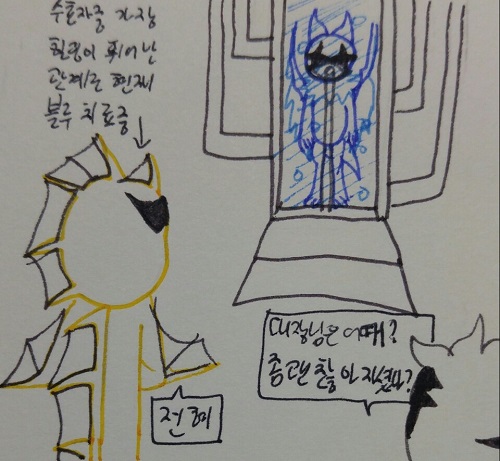 수호자중 가장
힐링이 뛰어난
관계로 현재
블루 치료중
대장님은 어때?
좀 괜찮아지셨나?
전혀